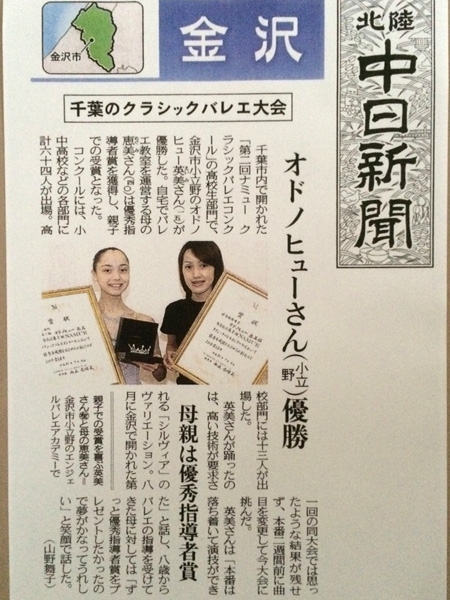 北陸
中日新聞
金沢
金沢市
千葉のクラシックバレエ大会
オドノヒューさん(小立野)優勝
母親は優秀指導者賞
千葉市内で開かれた
「第二回ナミュー ク
ラシックバレエコンク
ール」の高校生部門で、
金沢市小立野のオドノ
ヒュー英美さん(一五)が
優勝した。自宅でバレ
エ教室を運営する母の
恵美さん(四一)は優秀指
導者賞を獲得し、親子
での受賞となった。
コンクールには、小
中高校などの各部門に
計六十四人が出場。高
校部門には十三人が出
場した。
英美さんが踊ったの
は、高い技術が要求さ
れる「シルヴィア」の
ヴァリエーション。八
月に金沢で開かれた第
一回の同大会では思っ
たような結果が残せ
ず、本番一週間前に曲
目を変更して今大会に
挑んだ。
英美さんは「本番は
落ち着いて演技ができ
た」と話し、八歳から
バレエの指導を受けて
きた母に対しては「ず
っと優秀指導者賞をプ
レゼントしたかったの
で夢がかなってうれし
い」と笑顔で話した。
(山野舞子)
親子での受賞を喜ぶ英美
さん㊧と母の恵美さん=
金沢市小立野のエンジェ
ルバレエアカデミーで
賞状
賞状